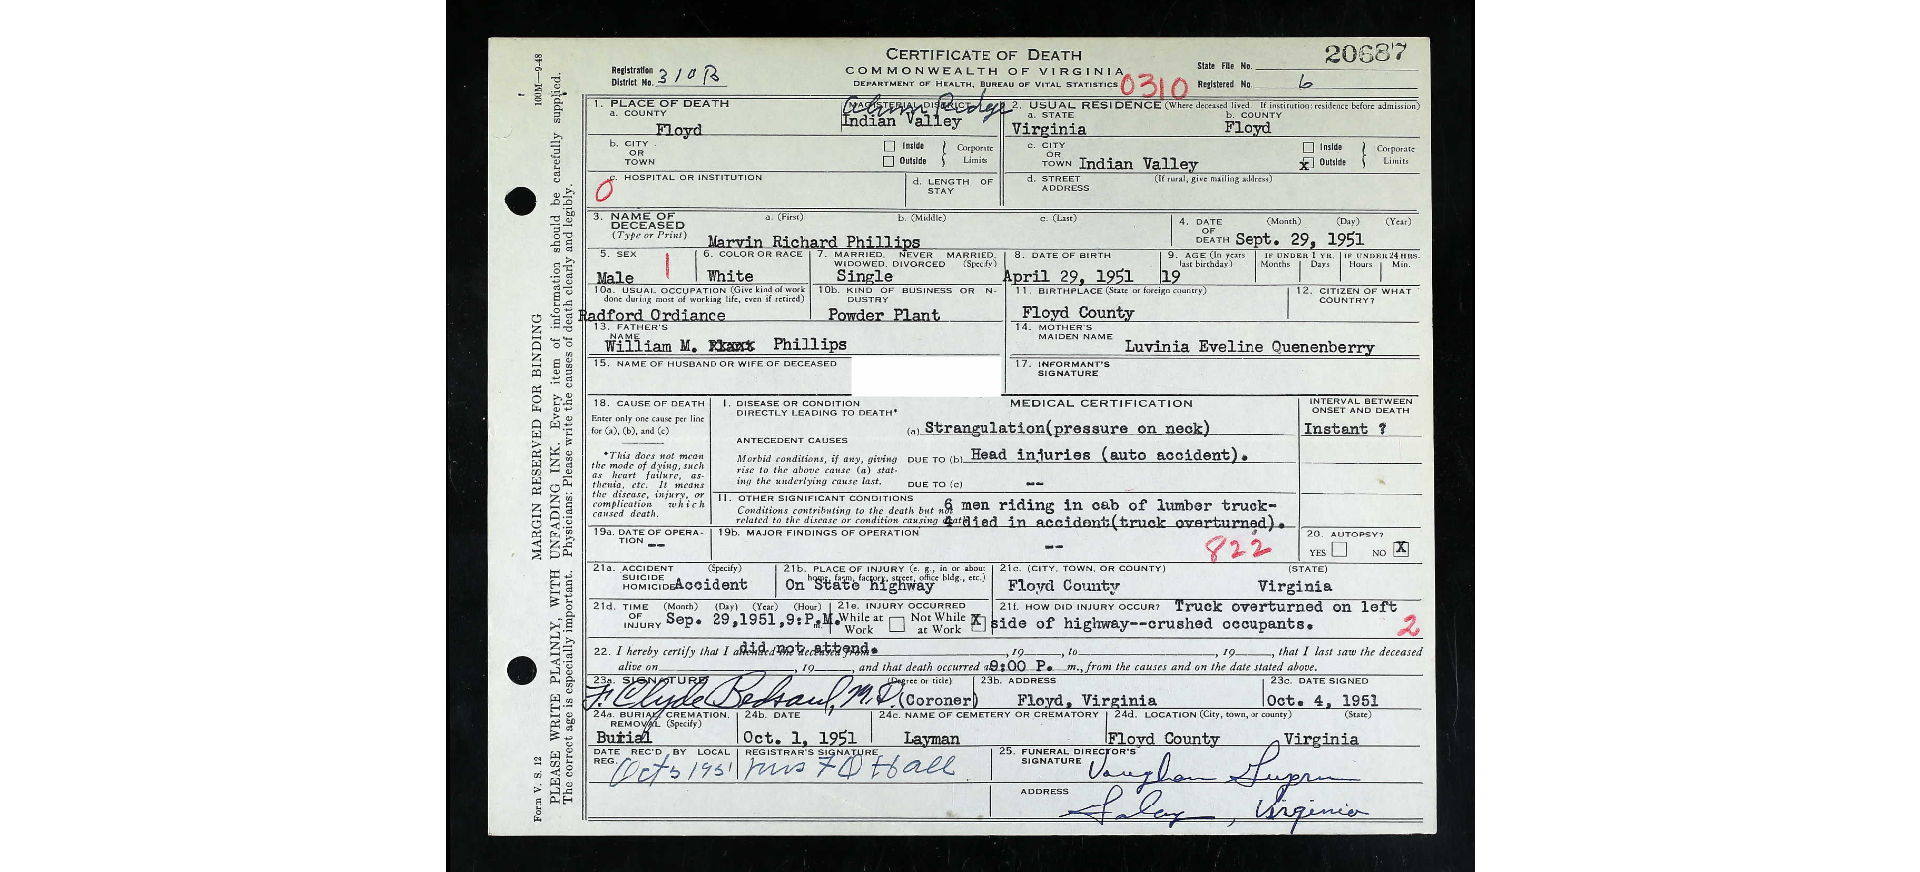 CERTIFICATE OF DEATH
20687
COMMONWEALTH OF VIRGINIA
DEPARTMENT OF HEALTH, BUREAU OF VITAL STATISTICS
0310
Registration District No. 310B
State File No.
Registered No. 6
1. PLACE OF DEATH
a. COUNTY
Floyd
MAGISTERIAL DISTRICT
Alum Ridge
Indian Valley
2. USUAL RESIDENCE (Where deceased lived. If institution: residence before admission)
a. STATE
Virginia
b. COUNTY
Floyd
b. CITY OR TOWN
Inside
Outside
Corporate Limits
c. CITY OR TOWN Indian Valley
Inside
x Outside
Corporate Limits
c. HOSPITAL OR INSTITUTION
0
d. LENGTH OF STAY
d. STREET ADDRESS
(If rural, give mailing address)
3. NAME OF DECEASED
(Type or Print)
a. (First) b. (Middle) c. (Last)
Marvin Richard Phillips
4. DATE OF DEATH
(Month) (Day) (Year)
Sept. 29, 1951
5. SEX
Male
6. COLOR OR RACE
White
7. MARRIED, NEVER MARRIED, WIDOWED, DIVORCED (Specify)
Single
8. DATE OF BIRTH
April 29, 1951
9. AGE (In years last birthday)
19
IF UNDER 1 YR.
Months Days
IF UNDER 24 HRS.
Hours Min.
10a. USUAL OCCUPATION (Give kind of work done during most of working life, even if retired)
Radford Ordiance
10b. KIND OF BUSINESS OR N-DUSTRY
Powder Plant
11. BIRTHPLACE (State or foreign country)
Floyd County
12. CITIZEN OF WHAT COUNTRY?
13. FATHER'S NAME
William M. Phillips
14. MOTHER'S MAIDEN NAME
Luvinia Eveline Quenenberry
15. NAME OF HUSBAND OR WIFE OF DECEASED
17. INFORMANT'S SIGNATURE
18. CAUSE OF DEATH
Enter only one cause per line for (a), (b), and (c)
*This does not mean the mode of dying, such as heart failure, asthenia, etc. It means the disease, injury, or complication which caused death.
I. DISEASE OR CONDITION DIRECTLY LEADING TO DEATH*
MEDICAL CERTIFICATION
INTERVAL BETWEEN ONSET AND DEATH
(a) Strangulation(pressure on neck)
Instant ?
ANTECEDENT CAUSES
Morbid conditions, if any, giving rise to the above cause (a) stating the underlying cause last.
DUE TO (b) Head injuries (auto accident).
DUE TO (c) --
II. OTHER SIGNIFICANT CONDITIONS
Conditions contributing to the death but not related to the disease or condition causing death.
6 men riding in cab of lumber truck-
4 died in accident(truck overturned).
19a. DATE OF OPERATION
--
19b. MAJOR FINDINGS OF OPERATION
--
822
20. AUTOPSY?
YES NO X
21a. ACCIDENT SUICIDE HOMICIDE (Specify)
Accident
21b. PLACE OF INJURY (e. g., in or about home, farm, factory, street, office bldg., etc.)
On State highway
21c. (CITY, TOWN, OR COUNTY) (STATE)
Floyd County Virginia
21d. TIME OF INJURY
(Month) (Day) (Year) (Hour)
Sep. 29,1951,9:P.M.
m.
21e. INJURY OCCURRED
While at Work
Not While at Work X
21f. HOW DID INJURY OCCUR? Truck overturned on left
side of highway--crushed occupants.
2
22. I hereby certify that I attended the deceased from did not attend. , 19 , to , 19 , that I last saw the deceased
alive on , 19 , and that death occurred at 9:00 P. m., from the causes and on the date stated above.
23a. SIGNATURE
(Degree or title)
F. Clyde Bedsaul, M.D. (Coroner)
23b. ADDRESS
Floyd, Virginia
23c. DATE SIGNED
Oct. 4, 1951
24a. BURIAL, CREMATION, REMOVAL (Specify)
Burial
24b. DATE
Oct. 1, 1951
24c. NAME OF CEMETERY OR CREMATORY
Layman
24d. LOCATION (City, town, or county) (State)
Floyd County Virginia
DATE REC'D BY LOCAL REG.
Oct 5 1951
REGISTRAR'S SIGNATURE
Mrs F D Hall
25. FUNERAL DIRECTOR'S SIGNATURE
Vaughan
ADDRESS
Virginia
Form V. S. 12
100M—9-48
MARGIN RESERVED FOR BINDING
PLEASE WRITE PLAINLY, WITH UNFADING INK. Every item of information should be carefully supplied.
The correct age is especially important. Physicians: Please write the causes of death clearly and legibly.